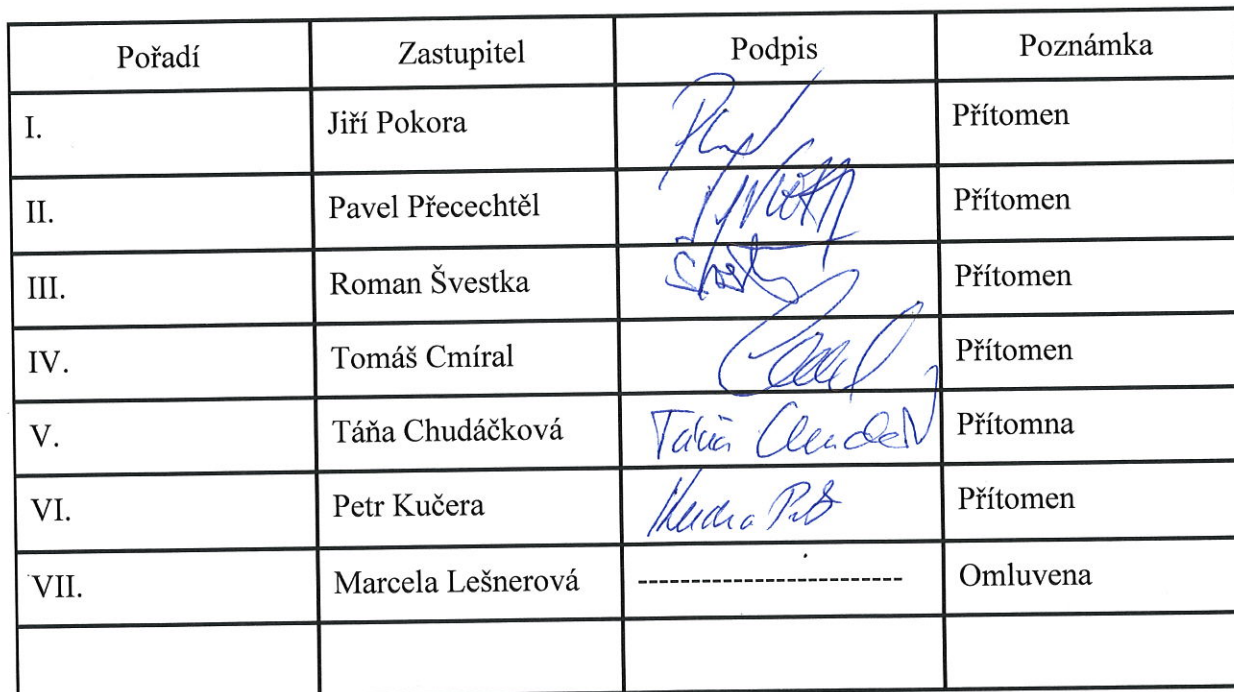 Pořadí Zastupitel Podpis Poznámka
I. Jiří Pokora Přítomen
II. Pavel Přecechtěl Přítomen
III. Roman Švestka Přítomen
IV. Tomáš Cmíral Přítomen
V. Táňa Chudáčková Táňa Přítomna
VI. Petr Kučera Přítomen
VII. Marcela Lešnerová ------------------------ Omluvena